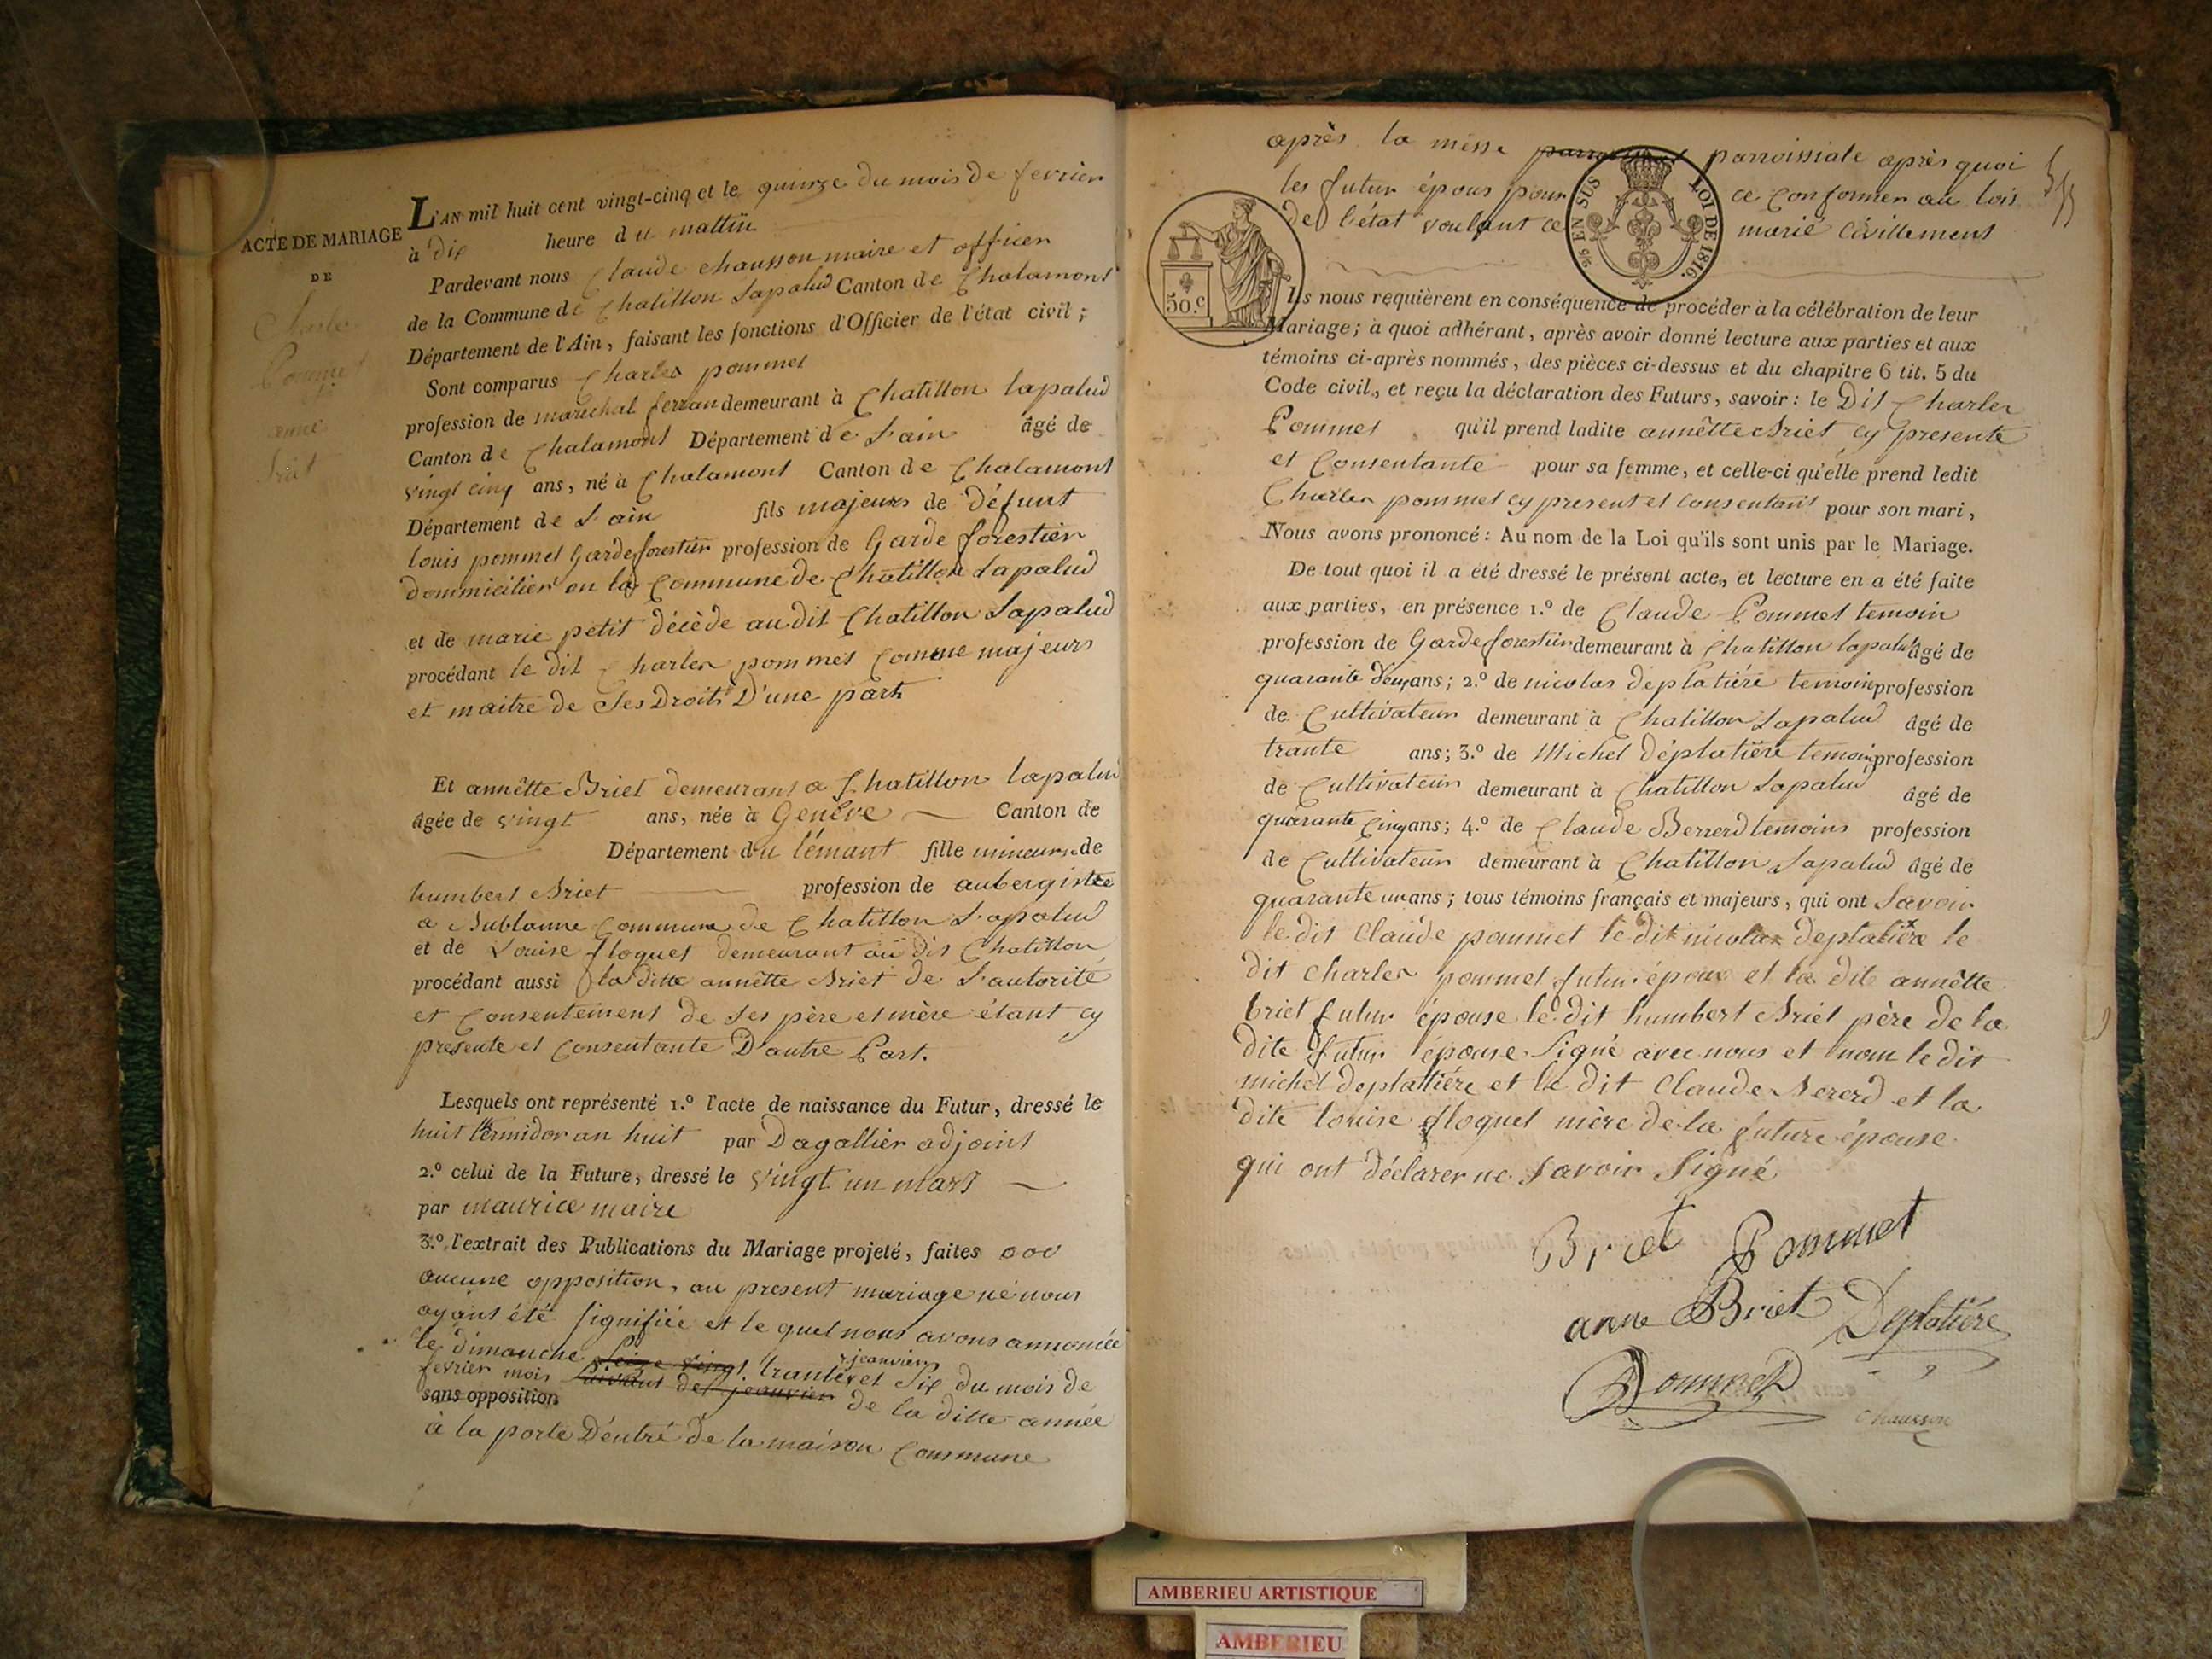 ACTE DE MARIAGE
DE
Charles
Pommet
anne
Briet
L'AN mil huit cent vingt-cinq et le quinze du mois de fevrier
à dix heure du mattin
Pardevant nous Claude chausson maire et officier
de la Commune de Chatillon Lapalud Canton de Chalamont
Département de l'Ain, faisant les fonctions d'Officier de l'état civil;
Sont comparus Charles pommet
profession de marechal ferran demeurant à Chatillon lapalud
Canton de Chalamont Département de L'ain âgé de
vingt cinq ans, né à Chalamont Canton de Chalamont
Département de L'ain fils majeurs de Défunt
louis pommet Garde forestier profession de Garde forestier
dommicilier en la Commune de Chatillon Lapalud
et de marie petit décède au dit Chatillon Lapalud
procédant le dit Charles pommet Comme majeurs
et maitre de Ses Droits D'une part
Et annêtte Briet demeurant a Chatillon lapalud
âgée de vingt ans, née à Genêve Canton de
Département du lémant fille mineurs de
humbert Briet profession de aubergiste
a Bublanne Commune de Chatillon Lapalud
et de Louise floquet demeurant au dit Chatillon
procédant aussi la ditte annêtte Briet de L'autorité
et Consentement de Ses père et mère étant cy
presente et Consentante D'autre Part.
Lesquels ont représenté 1.º l'acte de naissance du Futur, dressé le
huit termidor an huit par Dagallier adjoint
2.º celui de la Future, dressé le vingt un mars
par maurice maire
3.º l'extrait des Publications du Mariage projeté, faites
aucune opposition, au present mariage ne nous
ayant été signifiée et le quel nous avons annoncée
le dimanche seize vingt trante jeanvier et Six du mois de
fevrier mois suivant de jeanvier de la ditte année
sans opposition
à la porte D'entré de la maison Commune
après la messe parroissial parroissiale après quoi
les futur épous pour ce Conformer au lois
de l'état voulant ce marié Civillement
EN SUS LOI DE 1816.
50.c
Ils nous requièrent en conséquence de procéder à la célébration de leur
Mariage; à quoi adhérant, après avoir donné lecture aux parties et aux
témoins ci-après nommés, des pièces ci-dessus et du chapitre 6 tit. 5 du
Code civil, et reçu la déclaration des Futurs, savoir: le Dit Charles
Pommet qu'il prend ladite annêtte Briet cy presente
et Consentante pour sa femme, et celle-ci qu'elle prend ledit
Charles pommet cy present et Consentant pour son mari,
Nous avons prononcé: Au nom de la Loi qu'ils sont unis par le Mariage.
De tout quoi il a été dressé le présent acte, et lecture en a été faite
aux parties, en présence 1.º de Claude Pommet temoin
profession de Garde forestier demeurant à Chatillon lapalud âgé de
quarante deux ans; 2.º de nicolas deplatière temoin profession
de Cultivateur demeurant à Chatillon Lapalud âgé de
trante ans; 3.º de Michel Déplatière temoin profession
de Cultivateur demeurant à Chatillon Lapalud âgé de
quarante Cinq ans; 4.º de Claude Berrerd temoins profession
de Cultivateur demeurant à Chatillon Lapalud âgé de
quarante un ans; tous témoins français et majeurs, qui ont Savoir
le dit Claude pommet le dit nicolas deplatière le
dit Charles pommet futur époux et la dite annêtte
briet futur épouse le dit humbert Briet père de la
dite futur épouse Signé avec nous et nom le dit
michel deplattière et le dit Claude Bererd et la
dite louise floquet mère de la future épouse
qui ont déclarer ne Savoir Signé
Briet Pommet
anne Briet Deplatière
Pommet
Chausson
AMBERIEU ARTISTIQUE
AMBERIEU